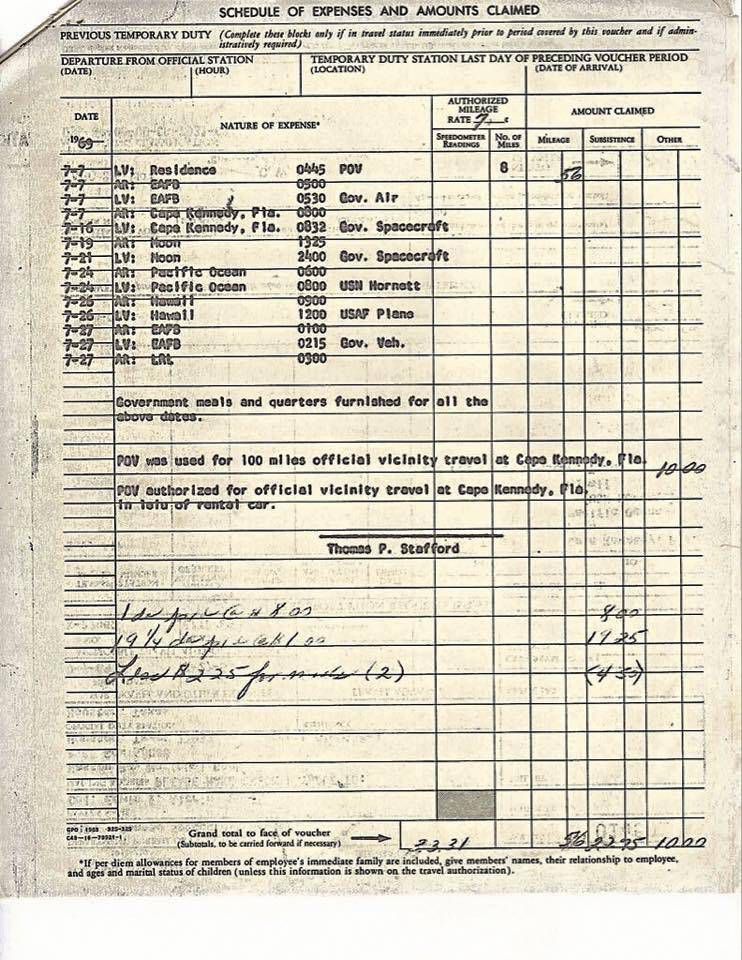 SCHEDULE OF EXPENSES AND AMOUNTS CLAIMED
PREVIOUS TEMPORARY DUTY (Complete these blocks only if in travel status immediately prior to period covered by this voucher and if admin-
istratively required)
DEPARTURE FROM OFFICIAL STATION TEMPORARY DUTY STATION LAST DAY OF PRECEDING VOUCHER PERIOD
(DATE) (HOUR) (LOCATION) (DATE OF ARRIVAL)
DATE NATURE OF EXPENSE* AUTHORIZED MILEAGE RATE 7 ¢ AMOUNT CLAIMED
1969 SPEEDOMETER READINGS NO. OF MILES MILEAGE SUBSISTENCE OTHER
7-7 LV: Residence 0445 POV 8 56
7-7 AR: EAFB 0500
7-7 LV: EAFB 0530 Gov. Air
7-7 AR: Cape Kennedy, Fla. 0800
7-16 LV: Cape Kennedy, Fla. 0832 Gov. Spacecraft
7-19 AR: Moon 1325
7-21 LV: Moon 2400 Gov. Spacecraft
7-24 AR: Pacific Ocean 0600
7-24 LV: Pacific Ocean 0800 USN Hornett
7-26 AR: Hawaii 0900
7-26 LV: Hawaii 1200 USAF Plane
7-27 AR: EAFB 0100
7-27 LV: EAFB 0215 Gov. Veh.
7-27 AR: LRL 0300
Government meals and quarters furnished for all the
above dates.
POV was used for 100 miles official vicinity travel at Cape Kennedy, Fla. 10 00
POV authorized for official vicinity travel at Cape Kennedy, Fla.
in leiu of rental car.
Thomas P. Stafford
1 @ $8.00 8.00
19 1/4 @ 1.00 19 25
Less $2.25 for meals (2) (4 50)
Grand total to face of voucher
(Subtotals, to be carried forward if necessary) 33.31 56 22 75 10 00
*If per diem allowances for members of employee's immediate family are included, give members' names, their relationship to employee,
and ages and marital status of children (unless this information is shown on the travel authorization).